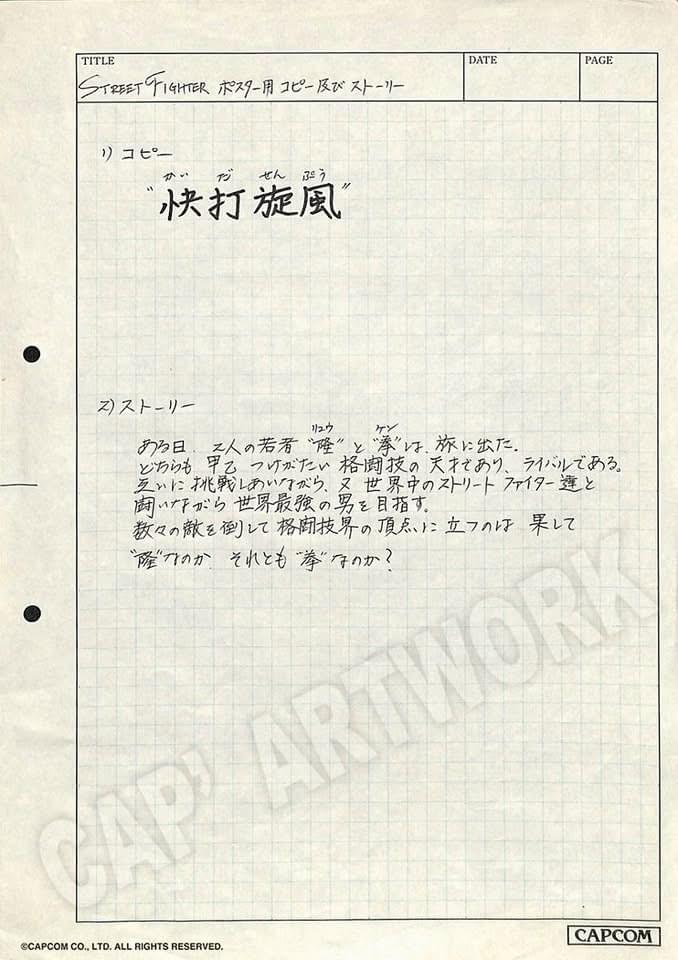 TITLE
DATE
PAGE
STREET FIGHTER ポスター用 コピー及び ストーリー
1) コピー
かい だ せん ぷう
"快打旋風"
2) ストーリー
リュウ ケン
ある日、2人の若者"隆"と"拳"は、旅に出た。
どちらも 甲乙 つけがたい 格闘技の 天才であり、ライバルである。
互いに 挑戦しあいながら、又 世界中のストリート ファイター 達と
闘いながら 世界最強の 男を 目指す。
数々の敵を倒して 格闘技界の 頂点に 立つのは 果して
"隆"なのか それとも "拳"なのか?
CAP' ARTWORK
©CAPCOM CO., LTD. ALL RIGHTS RESERVED.
CAPCOM